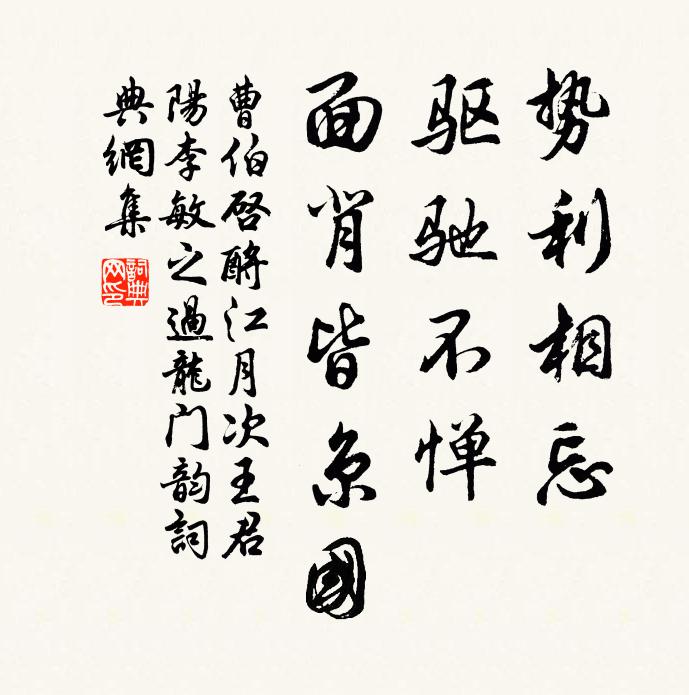 势利相忘
驱驰不惮
面背皆京國
曹伯啓酹江月次王君
陽李敏之過龍门韵詞
典網集
詞典
网印